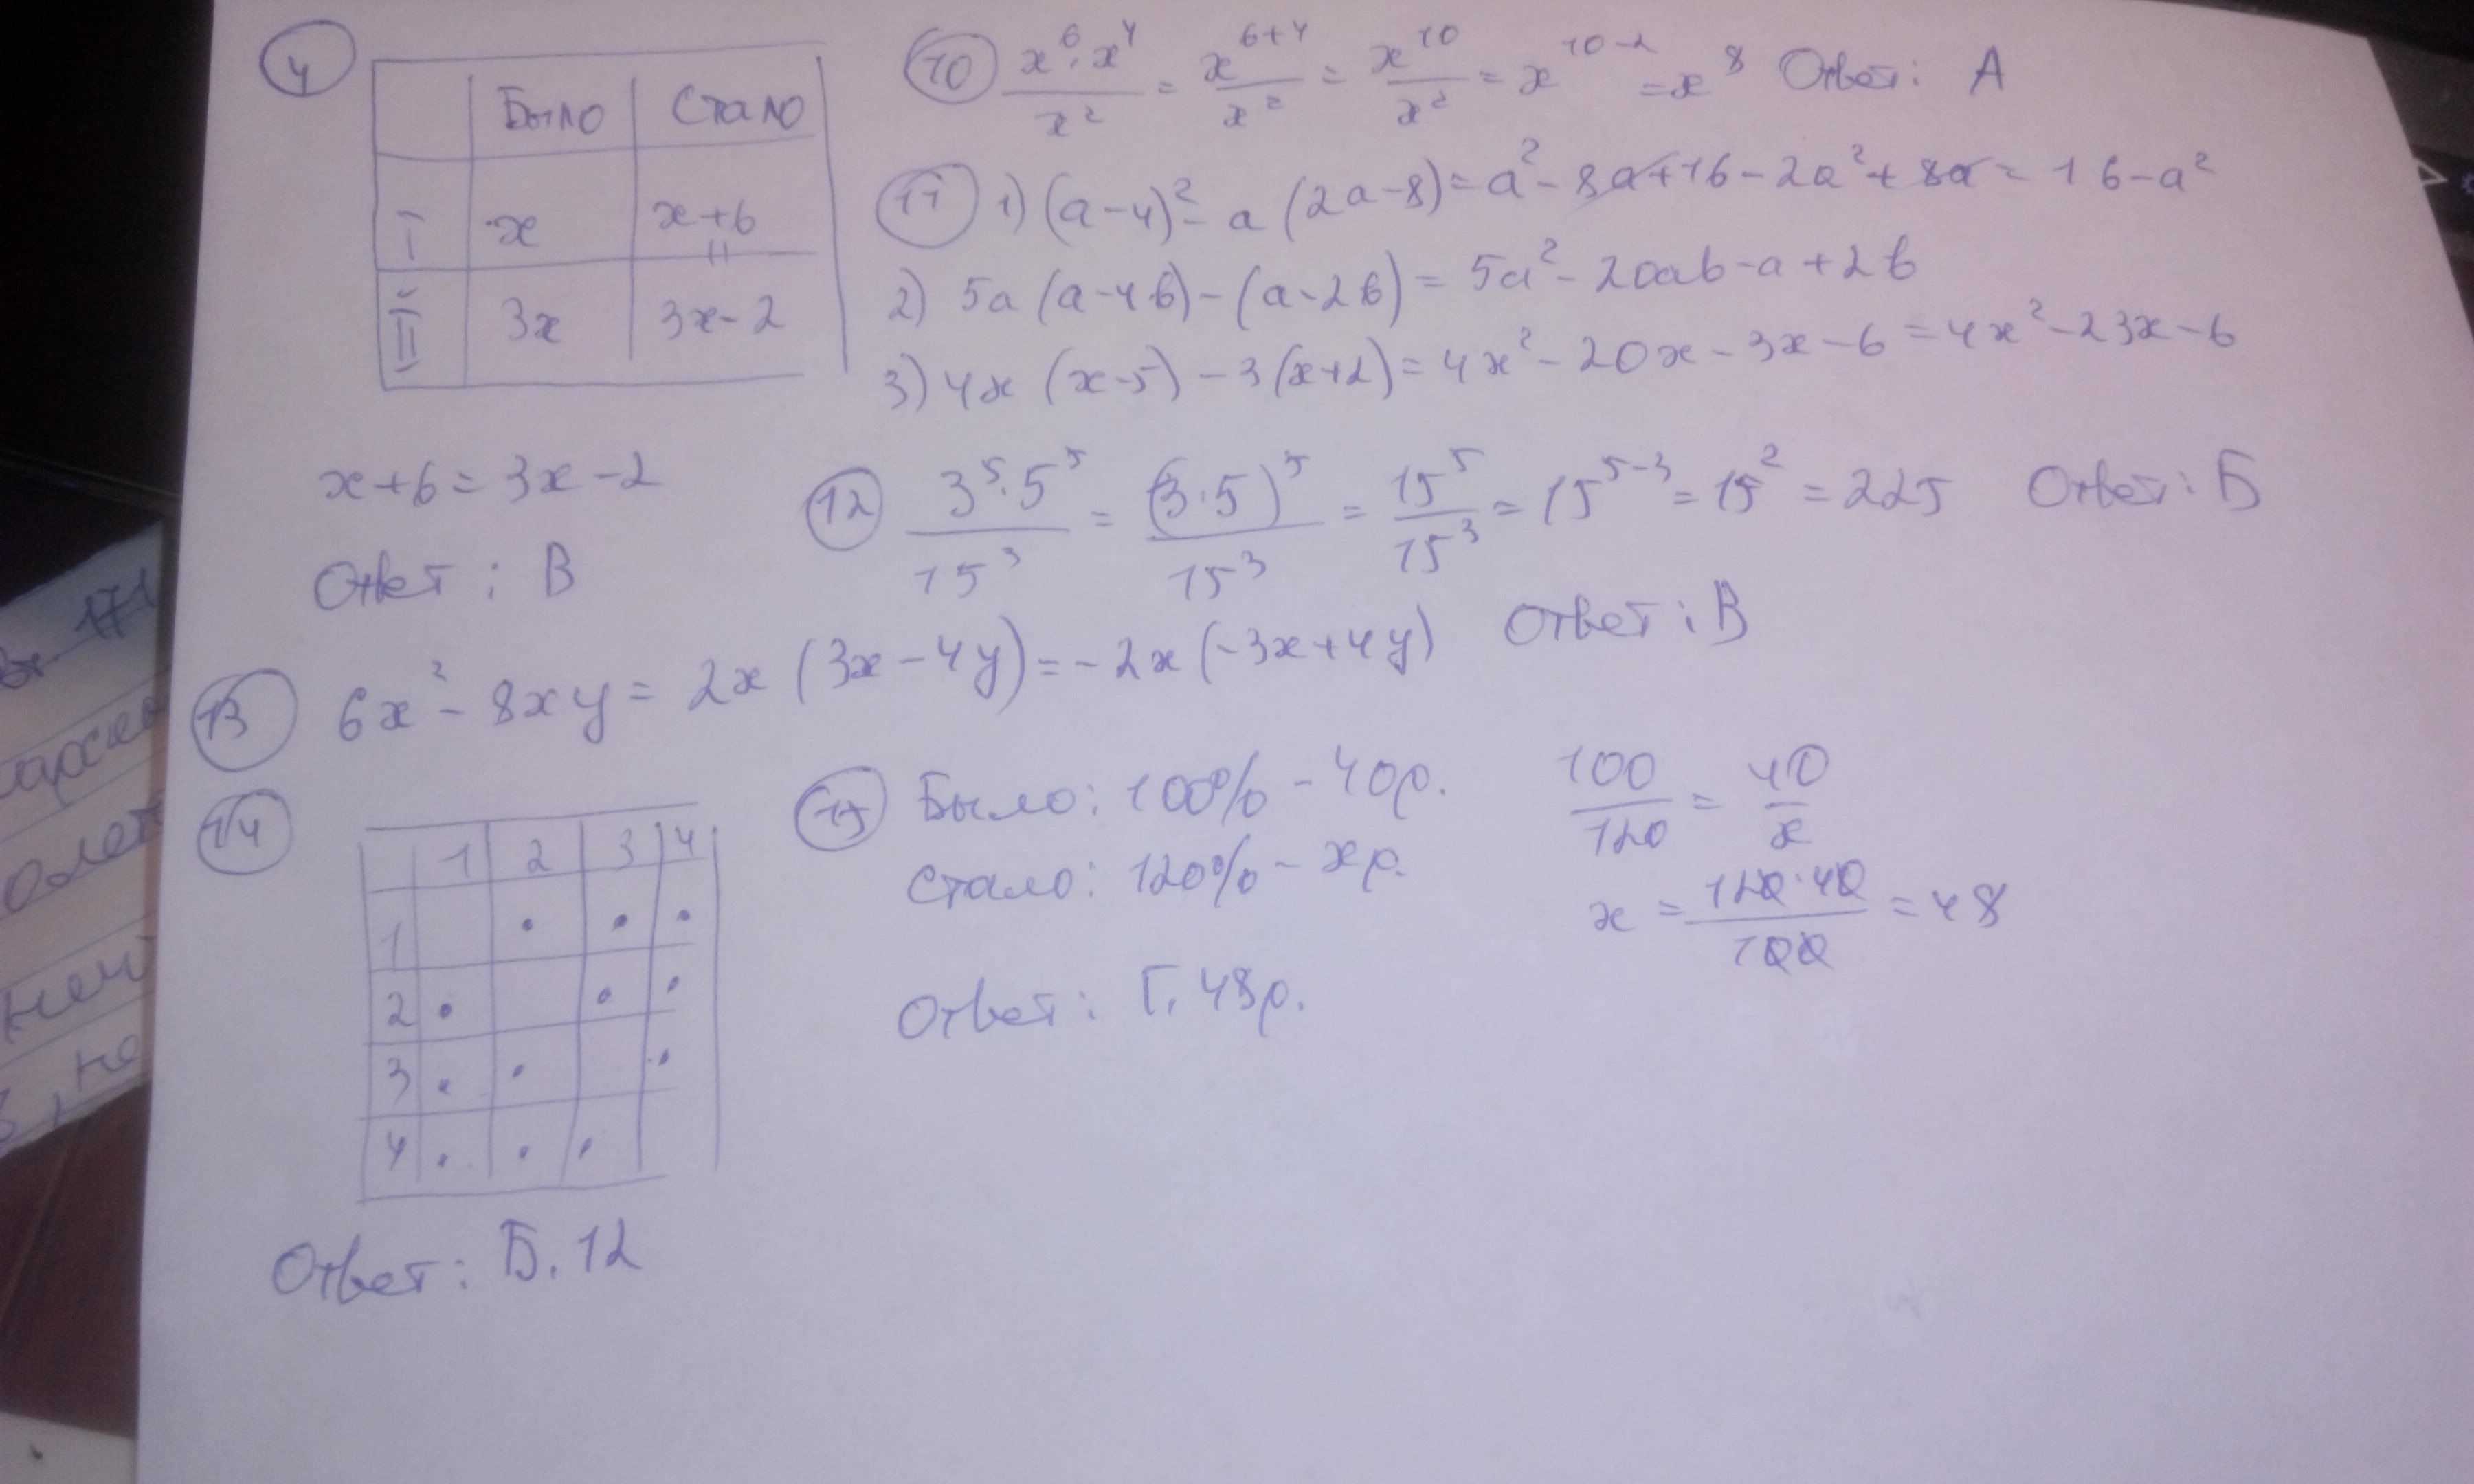 4
Было Стало
I x x+6
II 3x 3x-2
x+6=3x-2
Ответ: В
10 x⁶·x⁴/x² = x⁶⁺⁴/x² = x¹⁰/x² = x¹⁰⁻² = x⁸ Ответ: А
11 1) (a-4)² - a(2a-8) = a² - 8a + 16 - 2a² + 8a = 16 - a²
2) 5a(a-4b) - (a-2b) = 5a² - 20ab - a + 2b
3) 4x(x-5) - 3(x+2) = 4x² - 20x - 3x - 6 = 4x² - 23x - 6
12 3⁵·5⁵/15³ = (3·5)⁵/15³ = 15⁵/15³ = 15⁵⁻³ = 15² = 225 Ответ: Б
13 6x² - 8xy = 2x(3x-4y) = -2x(-3x+4y) Ответ: В
14
1 2 3 4
1 · · ·
2 · · ·
3 · · ·
4 · · ·
Ответ: Б. 12
15 Было: 100% - 40р. 100/120 = 40/x
Стало: 120% - xр. x = 120·40/100 = 48
Ответ: Г. 48р.
171
нет
, не